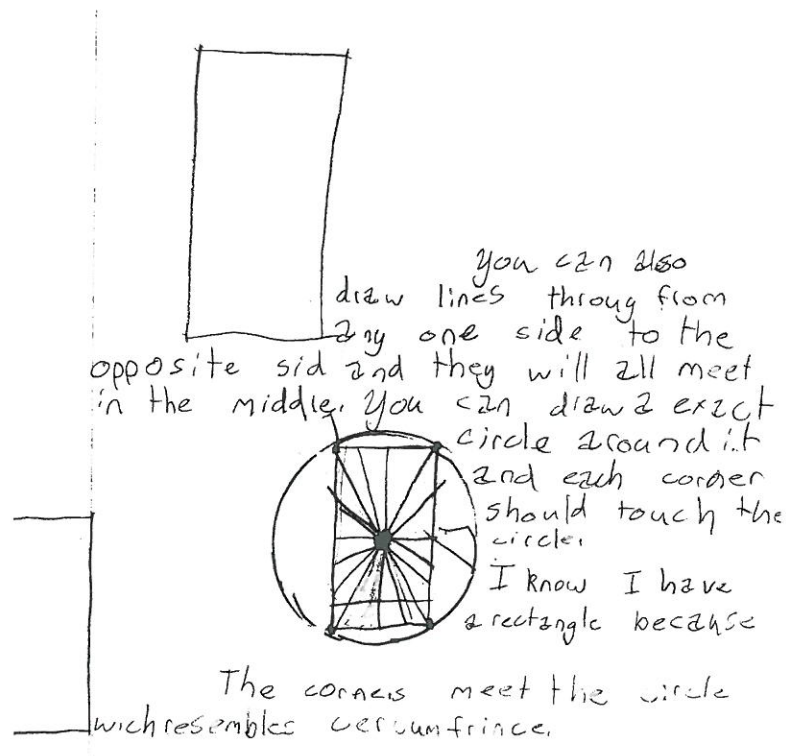 you can also
draw lines throug from
any one side to the
opposite sid and they will all meet
in the middle. You can draw a exact
circle around it
and each corner
should touch the
circle.
I know I have
a rectangle because
The corners meet the circle
wich resembles cercumfrince.